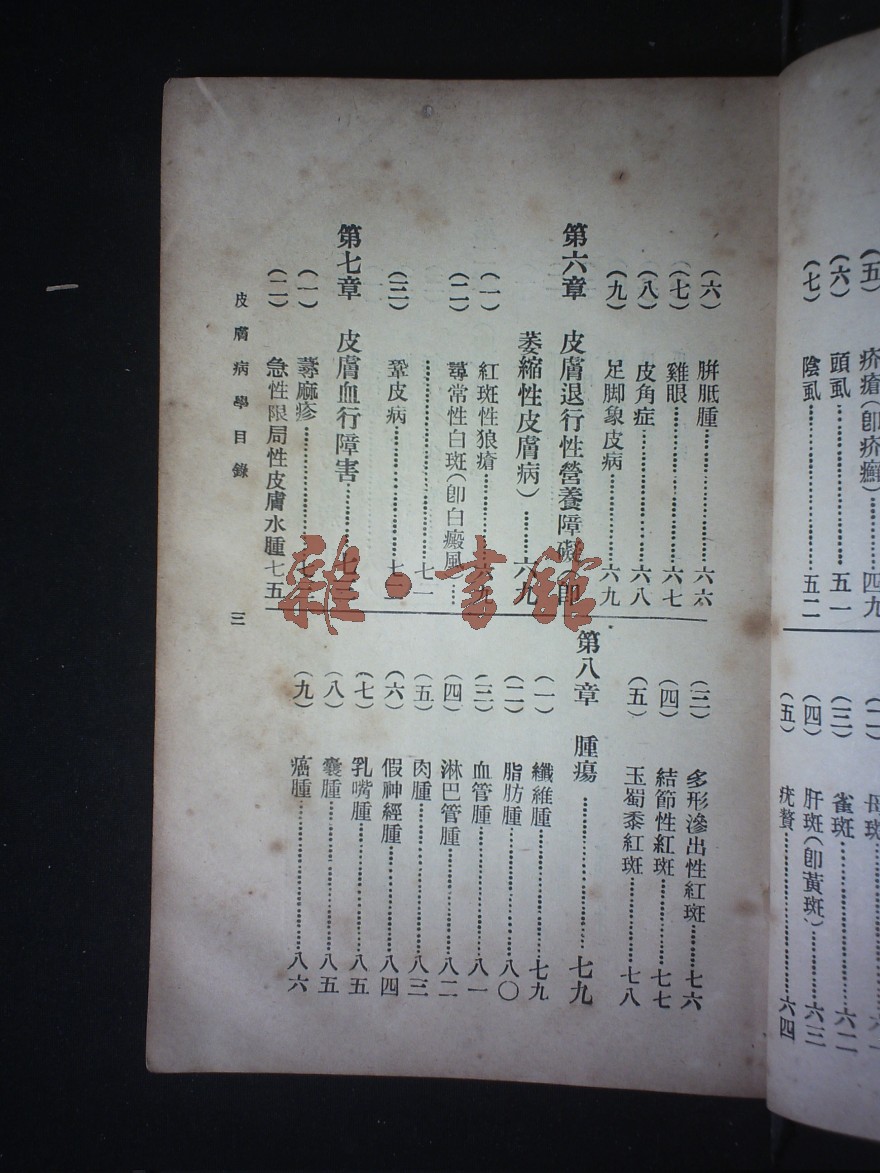 (五) 疥瘡(卽疥癬)……四九
(六) 頭虱……五一
(七) 陰虱……五二
(二) 母斑
(三) 雀斑……六二
(四) 肝斑(卽黃斑)……六三
(五) 疣贅……六四
(六) 胼胝腫……六六
(七) 雞眼……六七
(八) 皮角症……六八
(九) 足脚象皮病……六九
第六章 皮膚退行性營養障礙(卽
萎縮性皮膚病)……六九
(一) 紅斑性狼瘡……六九
(二) 尋常性白斑(卽白癜風)……
……七一
(三) 鞏皮病……七二
第七章 皮膚血行障害……七
(一) 蕁麻疹……七
(二) 急性限局性皮膚水腫七五
(三) 多形滲出性紅斑……七六
(四) 結節性紅斑……七七
(五) 玉蜀黍紅斑……七八
第八章 腫瘍……七九
(一) 纖維腫……七九
(二) 脂肪腫……八〇
(三) 血管腫……八一
(四) 淋巴管腫……八二
(五) 肉腫……八三
(六) 假神經腫……八四
(七) 乳嘴腫……八五
(八) 囊腫……八五
(九) 癌腫……八六
皮膚病學目錄 三
雜·書館